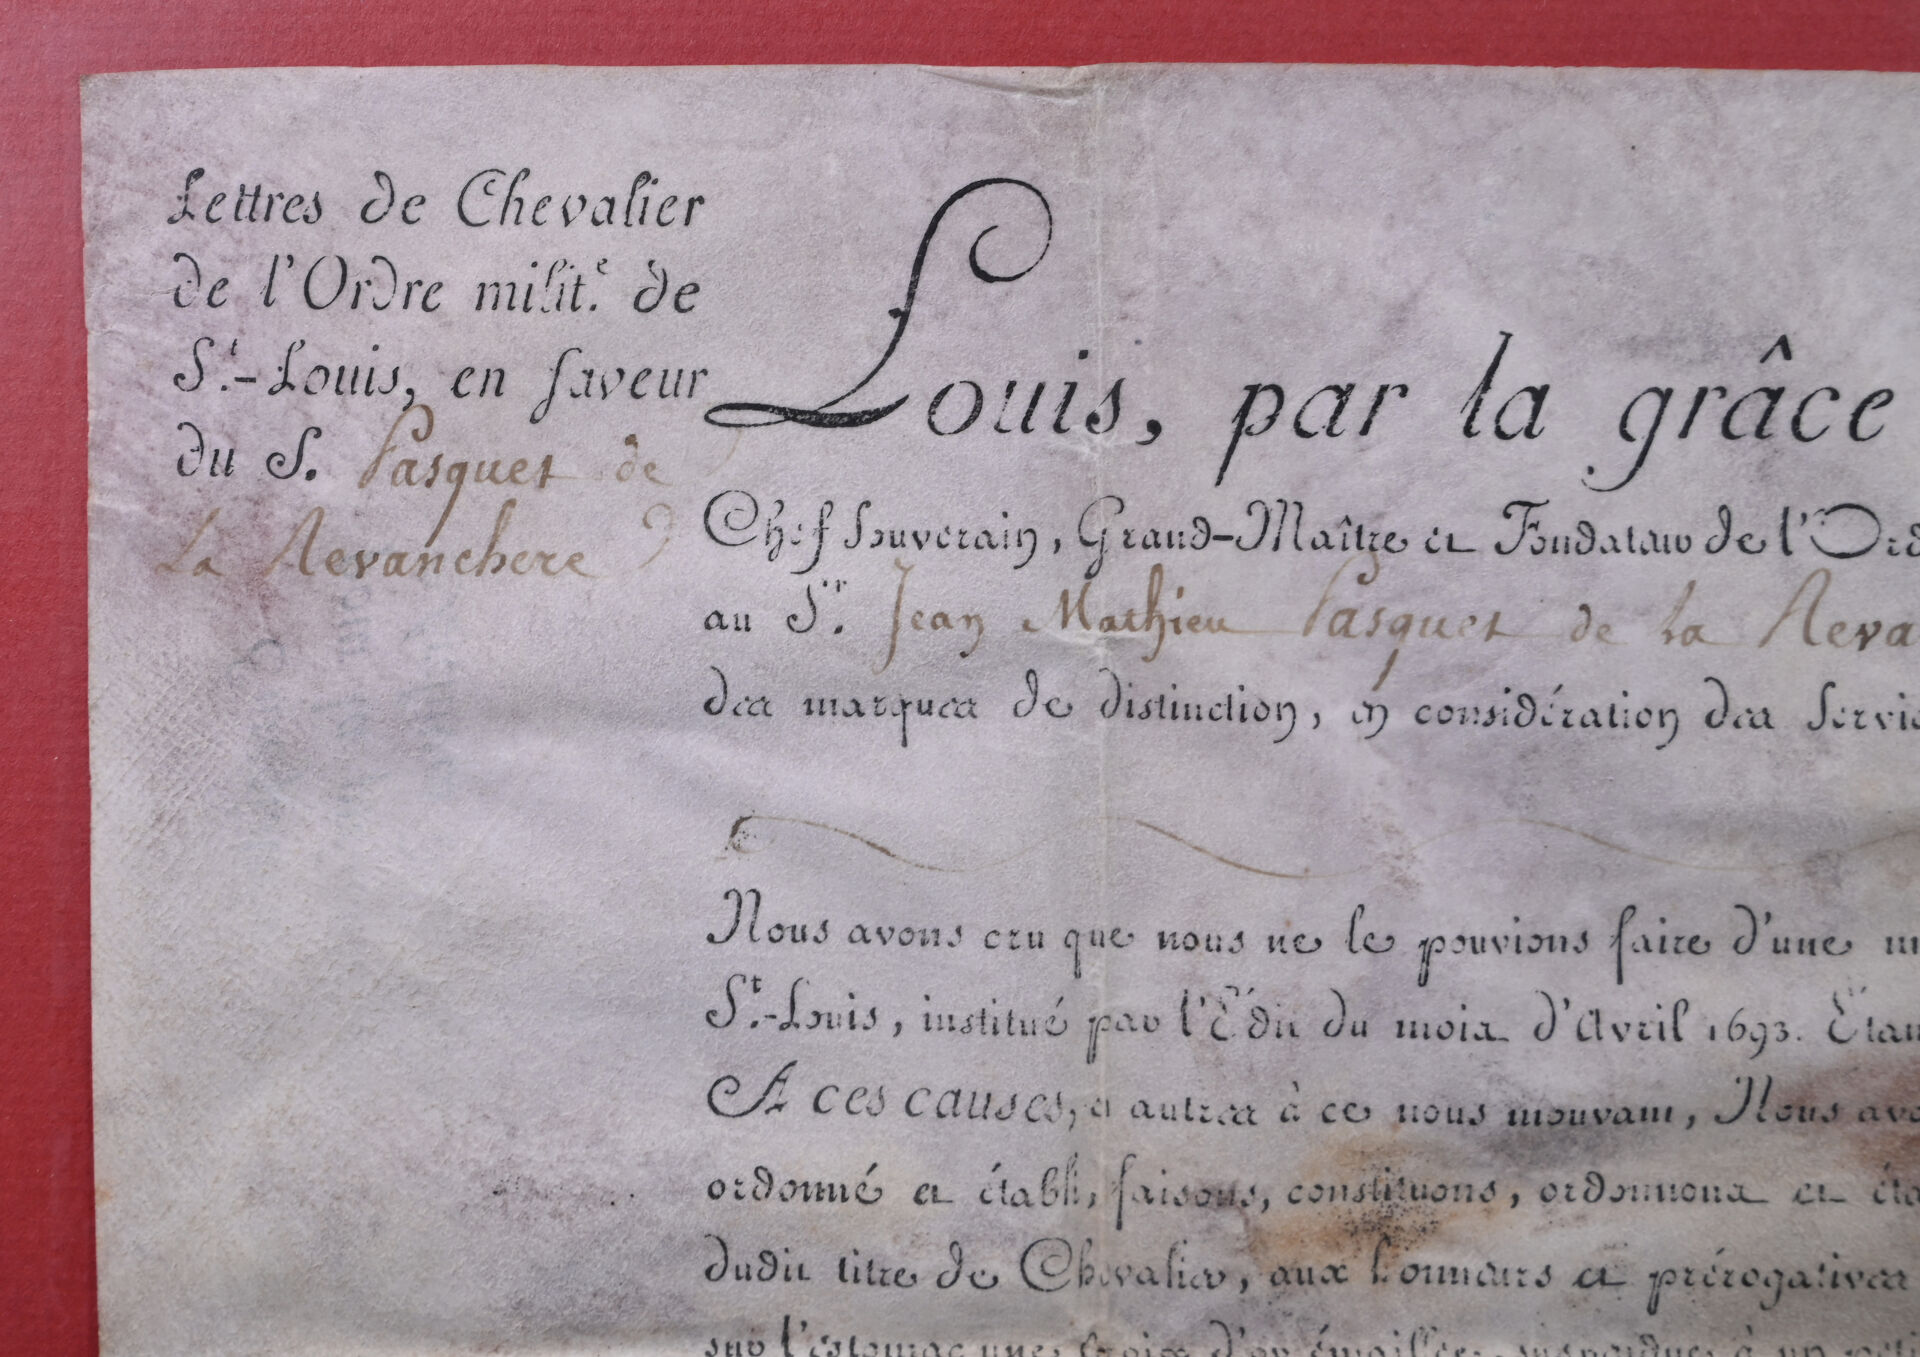 Lettres de Chevalier
de l'Ordre milit.e de
S.t-Louis, en faveur
du S. Pasquet de
La Revanchere
Louis, par la grâce
Chef Souverain, Grand-Maître et Fondateur de l'Ord
au S.r Jean Mathieu Pasquet de la Reva
des marques de distinction, en considération des Servic
Nous avons cru que nous ne le pouvions faire d'une m
S.t-Louis, institué par l'Édit du mois d'Avril 1693. Étan
A ces causes, et autres à ce nous mouvant, Nous avo
ordonné et établi, faisons, constituons, ordonnons et éta
dudit titre de Chevalier, aux honneurs et prérogatives
sur l'estomac une Croix d'or émaillée, suspendue à un peti